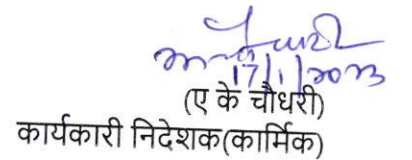 17/1/2023
(ए के चौधरी)
कार्यकारी निदेशक(कार्मिक)